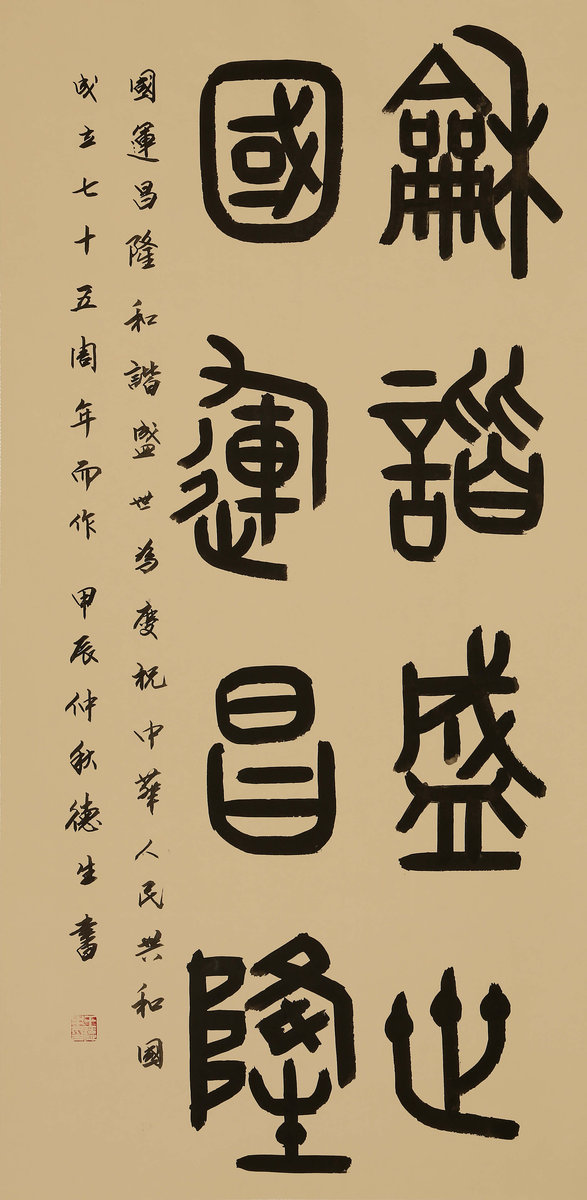 龢諧盛世
國運昌隆
國運昌隆和諧盛世為慶祝中華人民共和國
成立七十五周年而作 甲辰仲秋德生書